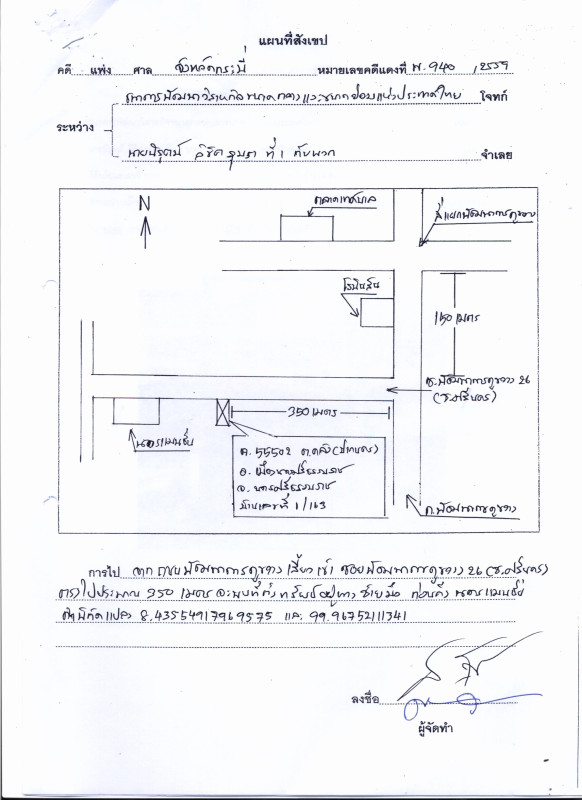 แผนที่สังเขป
คดี แพ่ง ศาล จังหวัดกระบี่ หมายเลขคดีแดงที่ พ. 940 / 2559
ธนาคารพัฒนาวิสาหกิจขนาดกลางและขนาดย่อมแห่งประเทศไทย โจทก์
ระหว่าง
ที่ 1 กับพวก จำเลย
N
ตลาดเทศบาล
สี่แยกพัฒนาการคูขวาง
150 เมตร
ซ.พัฒนาการคูขวาง 26
(ซ.ศรีนคร)
350 เมตร
นครแมนชั่น
ฉ. 55502 ต.คลัง
อ. เมืองนครศรีธรรมราช
จ. นครศรีธรรมราช
บ้านเลขที่ 1/163
ถ.พัฒนาการคูขวาง
การไป จาก ถนนพัฒนาการคูขวาง เลี้ยวเข้า ซอยพัฒนาการคูขวาง 26 (ซ.ศรีนคร)
ตรงไปประมาณ 350 เมตร จะพบที่ตั้งทรัพย์อยู่ทางซ้ายมือ ก่อนถึง นครแมนชั่น
ค่าพิกัดแปลง 8.43554917969575 และ 99.96752111341
ลงชื่อ
ผู้จัดทำ